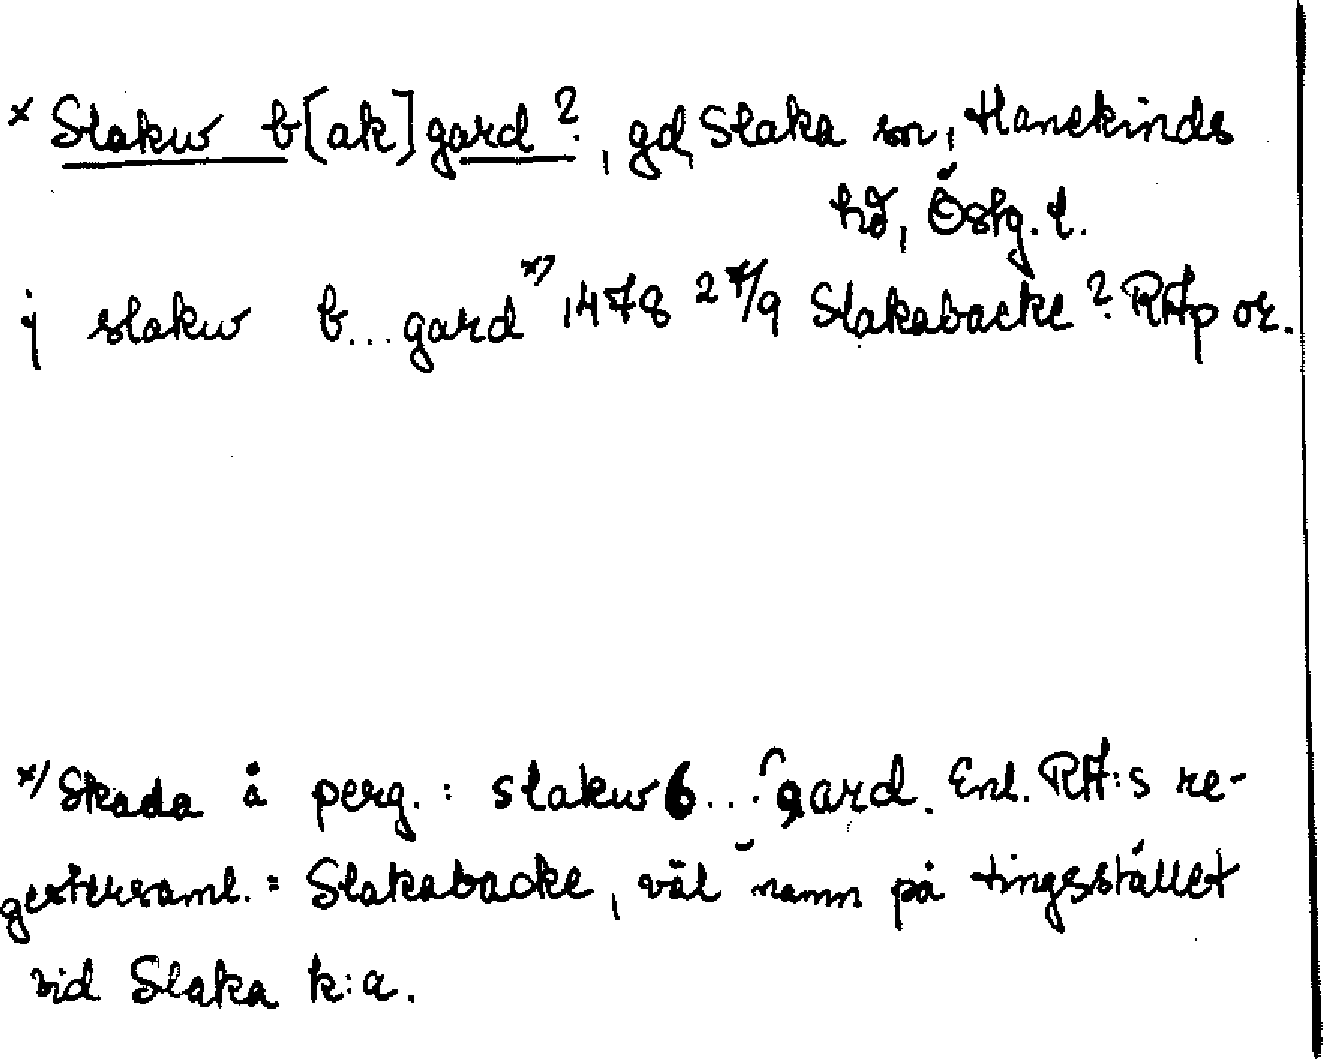 × Slakw b[ak]gard?, gd, Slaka sn, Hanekinds
hd, Östg. l.
j slakw b...gard ×) 1478 27/9 Slakabacke? RAp or.
×/ Skada å perg.: slakw b...gard. Enl. RA:s re-
gestersaml. = Slakabacke, väl namn på tingsstället
vid Slaka k:a.